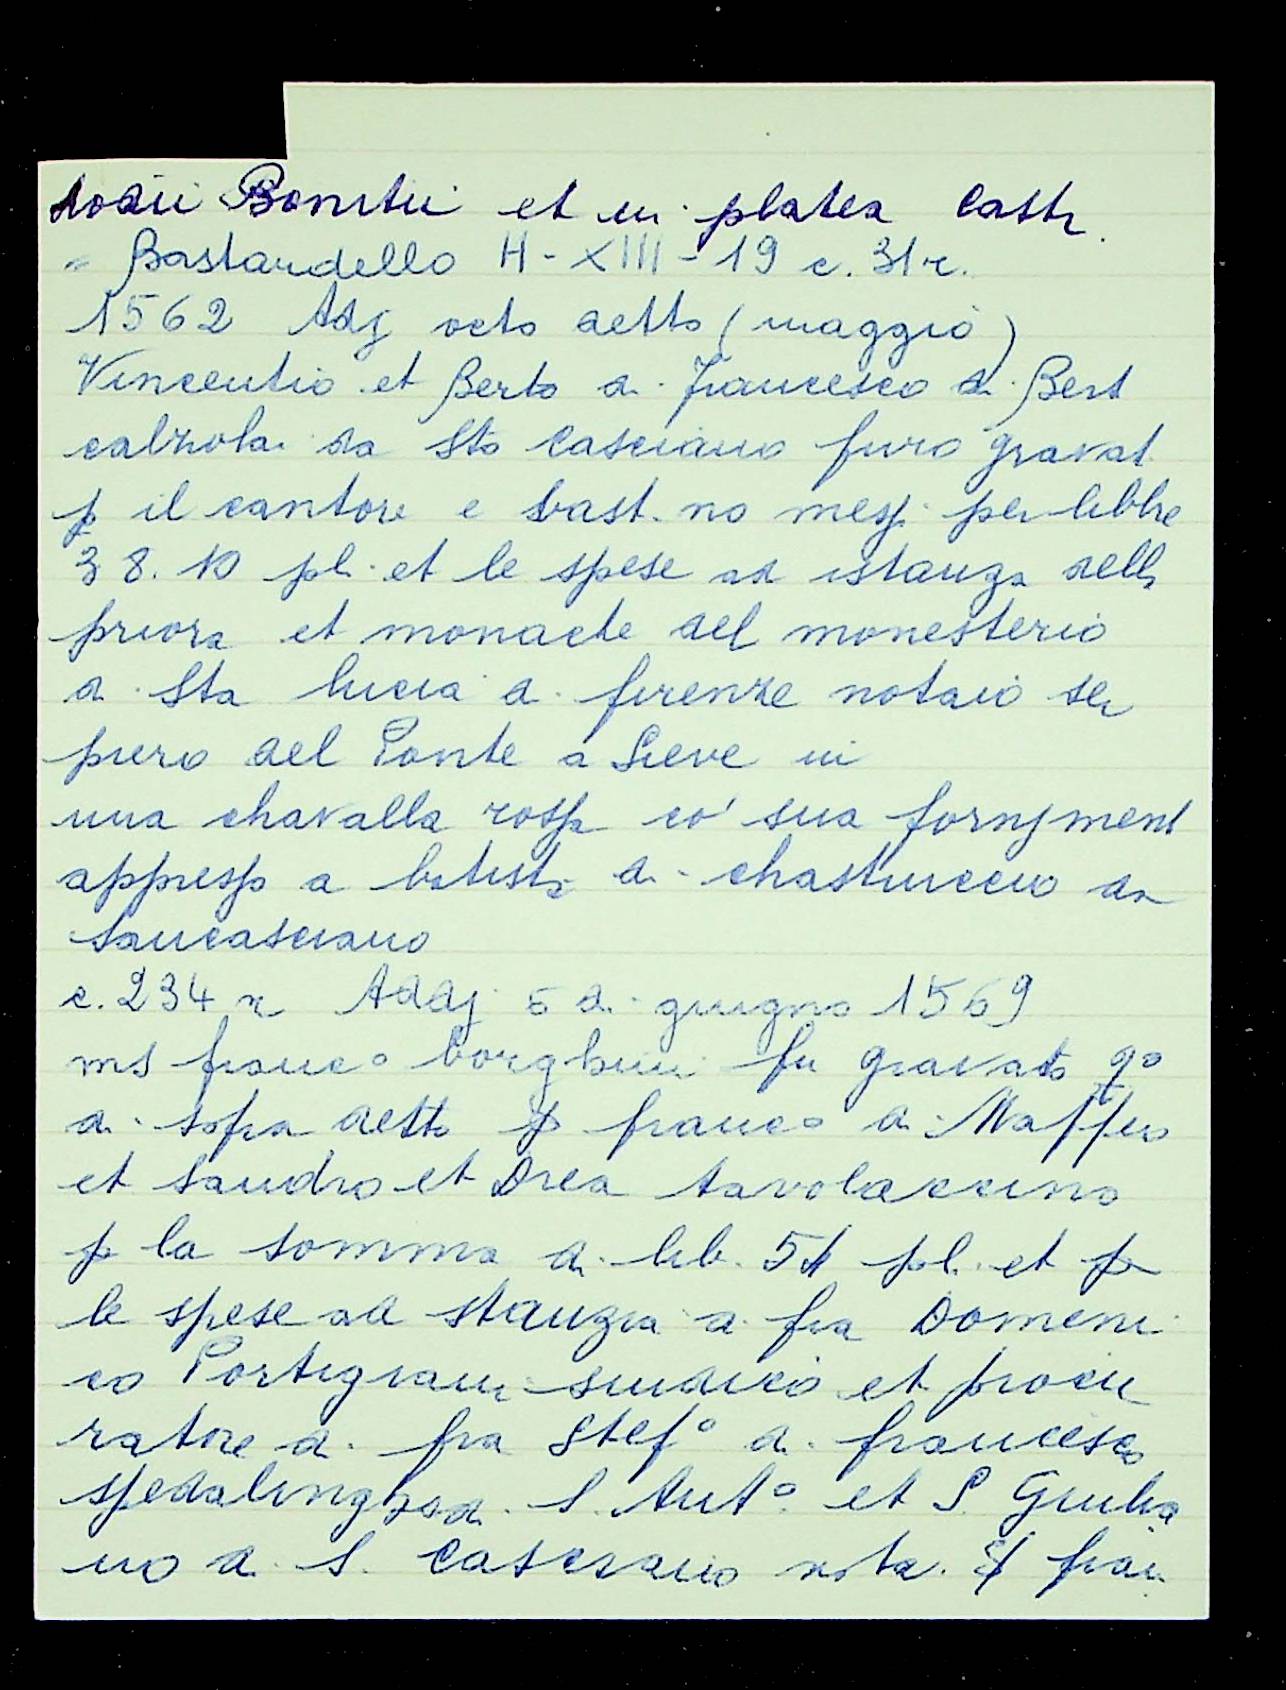 Bonitii et in platea Castr.
= Bastardello H-XIII-19 c. 31r.
1562 Adj octo detto (maggio)
Vincentio et Berto di Francesco di Bert
calzolai da Sto Casciano furo gravat
p il cantore e bast.no messi per libbre
38.10 pl. et le spese ad istanza della
priora et monache del monesterio
di Sta lucia di firenze notaio ser
piero del Ponte a Sieve in
una chavalla rossa co' sua fornjment
appresso a batista di chastruccio da
sancasciano
c. 234 r Addj 5 di giugno 1569
ms franc° borghini fu gravato q°
di sopra detto p franc° di Maffeo
et sandro et Drea tavolaccino
p la somma di lib. 54 pl. et p
le spese ad stanzia di fra Domeni
co Portigiani sindico et procu
ratore di fra Stef° di francesco
spedalingho di S. Ant° et S. Giulia
no di S. Casciano fran